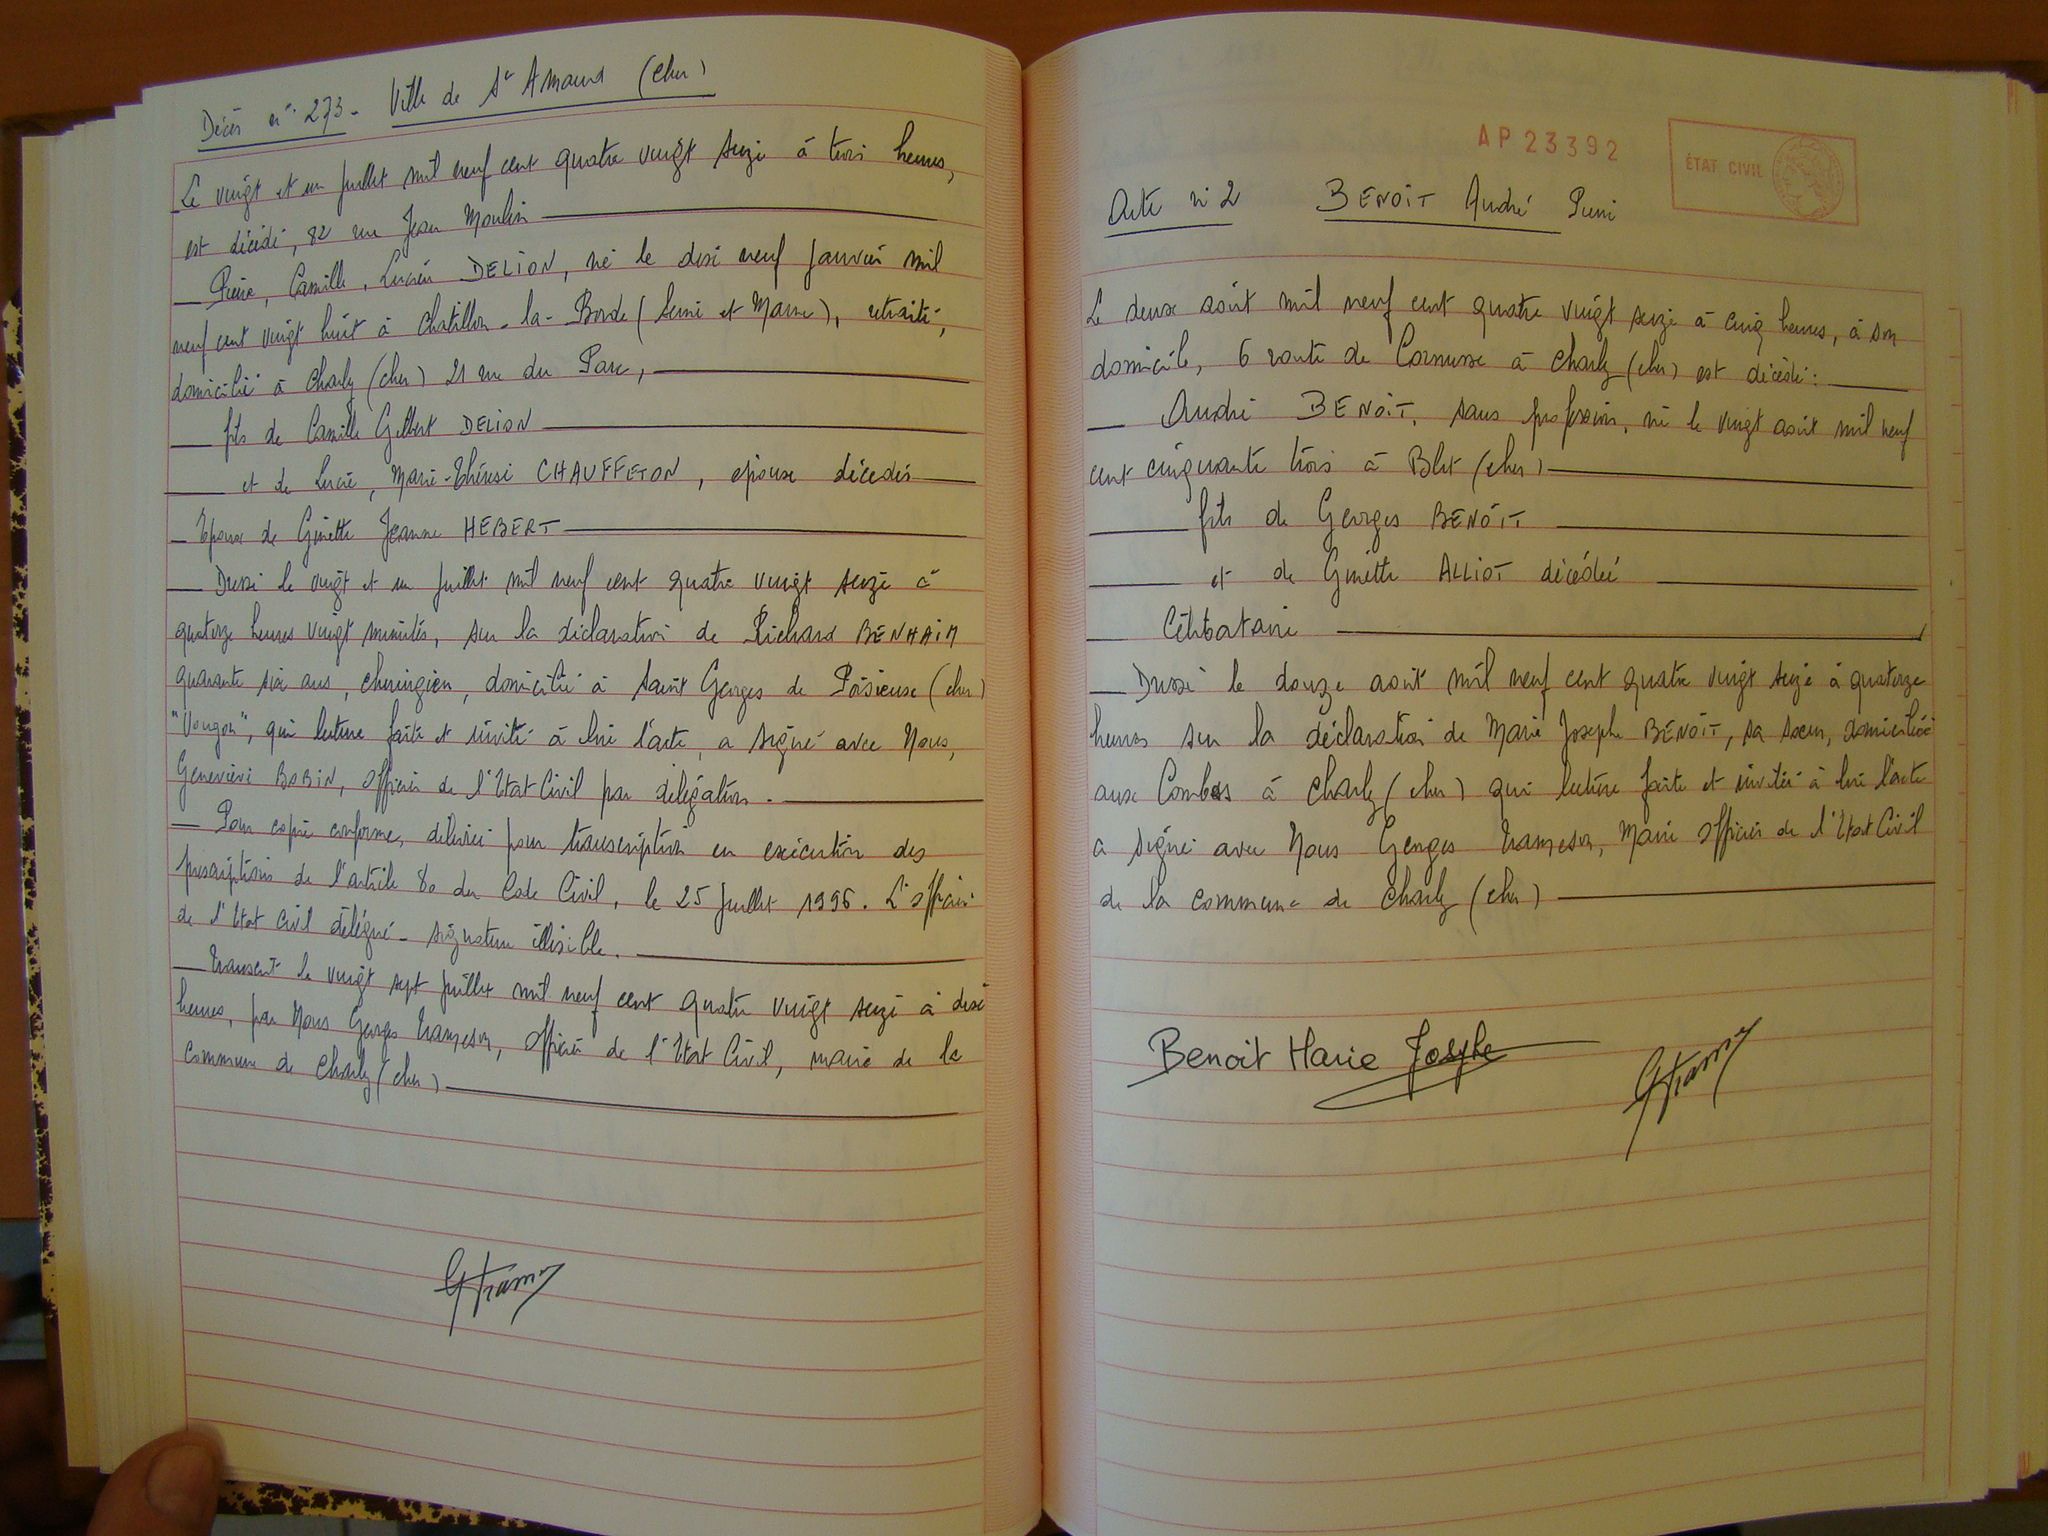 Décès n° 273 - Ville de St Amand (Cher)
Le vingt et un juillet mil neuf cent quatre vingt seize à trois heures,
est décédé, 82 rue Jean Moulin
Pierre, Camille, Lucien DELION, né le dix neuf janvier mil
neuf cent vingt huit à Chatillon-la-Borde (Seine et Marne), retraité,
domicilié à Charly (Cher) 21 rue du Parc,
fils de Camille Gilbert DELION
et de Lucie, Marie-Thérèse CHAUFFETON, époux décédés
Epoux de Ginette Jeanne HEBERT
Dressé le vingt et un juillet mil neuf cent quatre vingt seize à
quatorze heures vingt minutes, sur la déclaration de Richard BENHAIM
quarante six ans, chirurgien, domicilié à Saint Georges de Poisieuse (Cher)
"Vougon", qui lecture faite et invité à lire l'acte, a signé avec Nous,
Geneviève BOBIN, officier de l'Etat Civil par délégation.
Pour copie conforme, délivrée pour transcription en exécution des
prescriptions de l'article 80 du Code Civil, le 25 juillet 1996. L'officier
de l'Etat Civil délégué - signature illisible.
Transcrit le vingt sept juillet mil neuf cent quatre vingt seize à dix
heures, par Nous Georges Trameson, officier de l'Etat Civil, maire de la
commune de Charly (Cher)
AP 23392
ÉTAT CIVIL
Acte n° 2 BENOÎT André Pierre
Le deux août mil neuf cent quatre vingt seize à cinq heures, à son
domicile, 6 route de Cornusse à Charly (Cher) est décédé :
André BENOÎT, sans profession, né le vingt août mil neuf
cent cinquante trois à Blet (Cher)
fils de Georges BENOÎT
et de Ginette ALLIOT décédée
Célibataire
Dressé le douze août mil neuf cent quatre vingt seize à quatorze
heures sur la déclaration de Marie Josephe BENOÎT, sa soeur, domiciliée
aux Combes à Charly (Cher) qui lecture faite et invitée à lire l'acte
a signé avec Nous Georges Trameson, Maire officier de l'Etat Civil
de la commune de Charly (Cher)
Benoit Marie Josephe